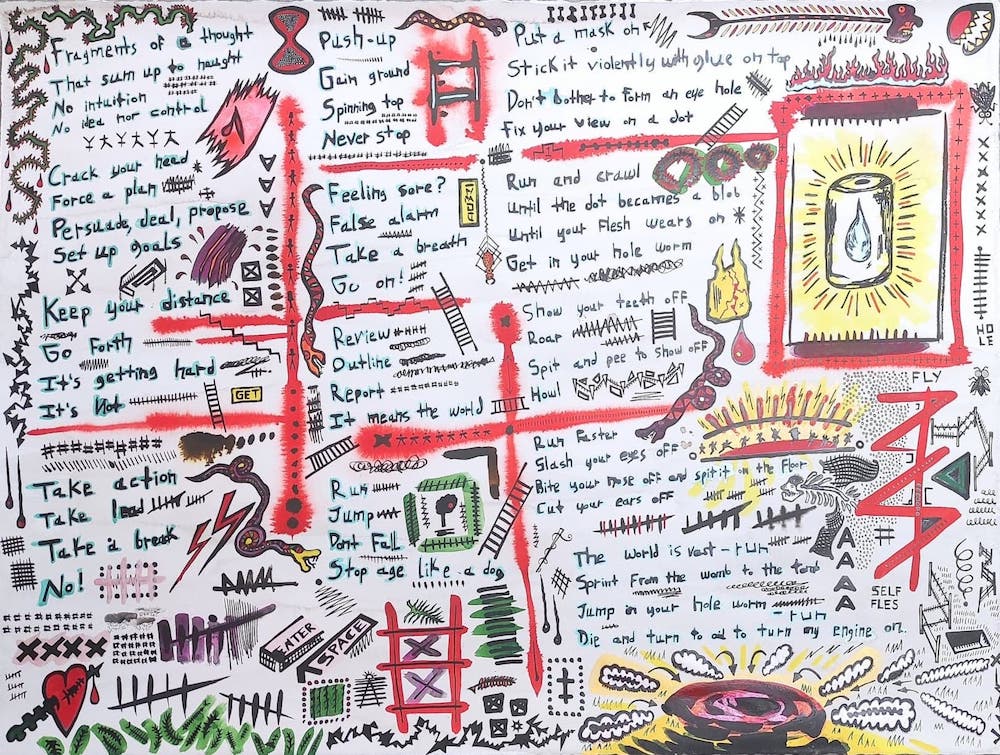 Fragments of a thought
That sum up to naught
No intuition
No idea nor control
Crack your head
Force a plan
Persuade, deal, propose
Set up goals
Keep your distance
Go forth
It's getting hard
It's not
GET
Take action
Take lead
Take a break
No!
ENTER
SPACE
Push-up
Gain ground
Spinning top
Never stop
Feeling sore?
False alarm
Take a breath
Go on!
Review
Outline
Report
It means the world
Run
Jump
Dont Fall
Stop age like a dog
Put a mask on
Stick it violently with glue on top
Don't bother to form an eye hole
Fix your view on a dot
Run and crawl
Until the dot becomes a blob
Until your flesh wears on
Get in your hole worm
Show your teeth off
Roar
Spit and pee to show off
Howl
Run faster
Slash your eyes off
Bite your nose off and spit it on the floor
Cut your ears off
The world is vast - run
Sprint from the womb to the tomb
Jump in your hole worm
run
Die and turn to oil to turn my engine on.
HOLE
FLY
A
A
A
A
SELF
FLES